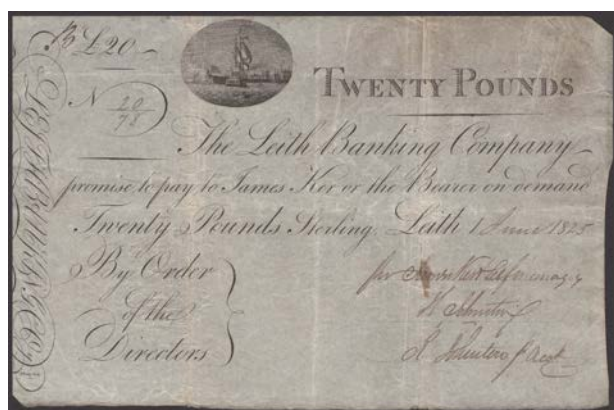 B £20
TWENTY POUNDS
N 20/78
The Leith Banking Company
promise to pay to James Ker or the Bearer on demand
Twenty Pounds Sterling. Leith 1 June 1825
By Order
of the
Directors
LEITH BANKING COY